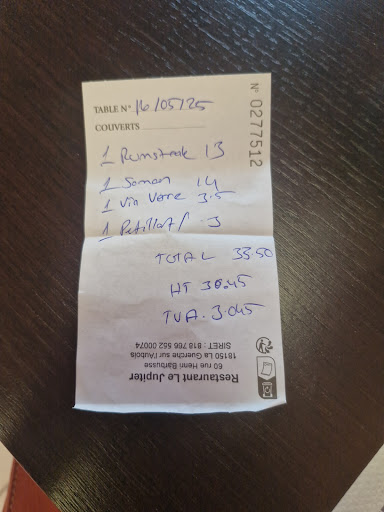 TABLE N° 16/05/25
COUVERTS
N° 0277512
1 Rumsteak 13
1 Somon 14
1 Vin Verre 3.5
1 Petillat/ 3
TOTAL 33.50
HT 30.45
TVA. 3.045
Restaurant Le Jupiter
60 rue Henri Barbusse
18150 La Guerche sur l'Aubois
SIRET : 818 766 552 00074